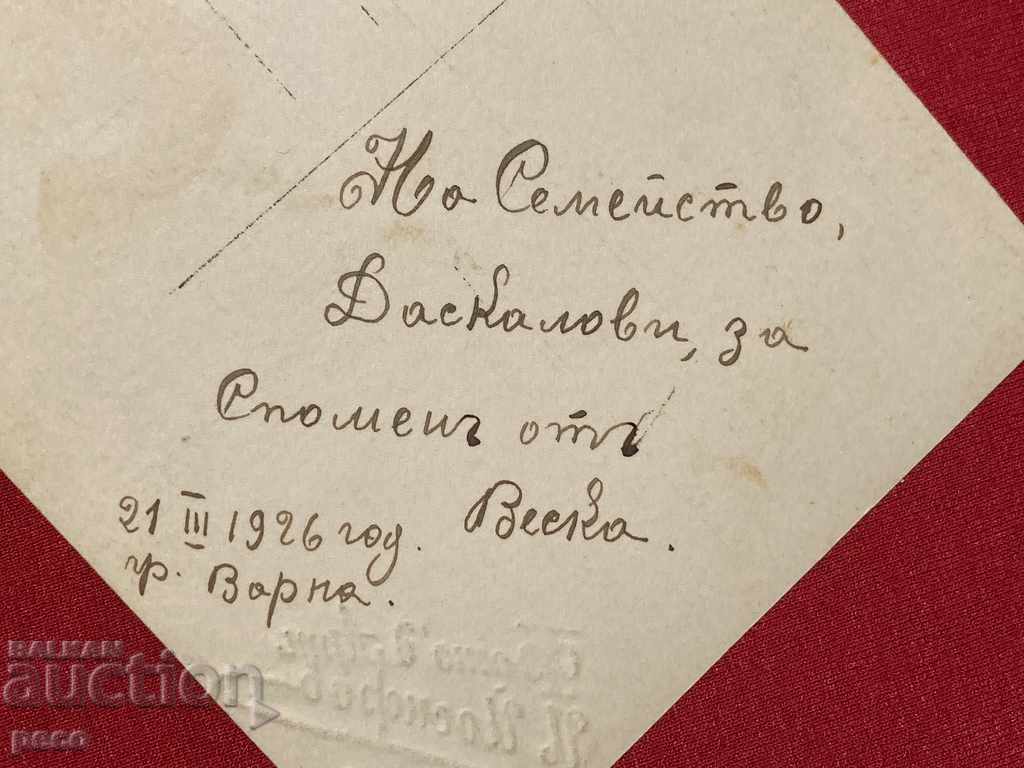 На Семейство,
Даскалови, за
Споменъ отъ
Веска.
21 III 1926 год.
гр. Варна.
BALKAN
auction
peco